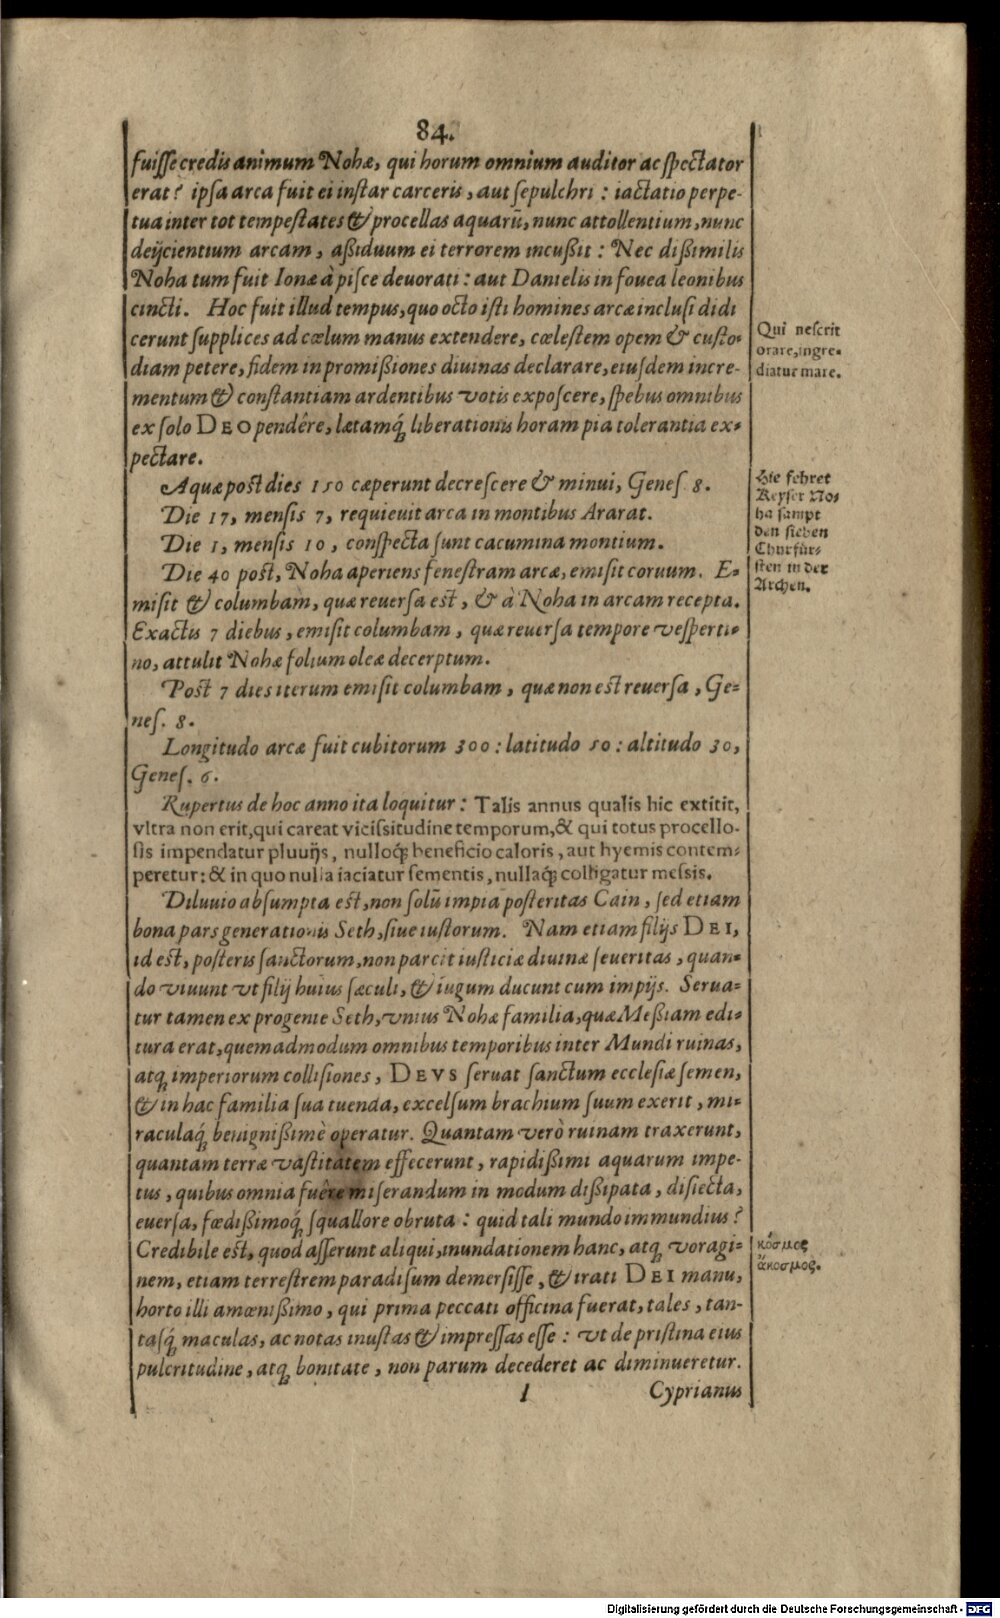 84.
fuiſſe credis animum Nohæ, qui horum omnium auditor ac ſpectator
erat? ipſa arca fuit ei inſtar carceris, aut ſepulchri: iactatio perpe-
tua inter tot tempeſtates & procellas aquarũ, nunc attollentium, nunc
deijcientium arcam, aßiduum ei terrorem incußit: Nec dißimilis
Noha tum fuit Ionæ à piſce deuorati: aut Danielis in fouea leonibus
cincti. Hoc fuit illud tempus, quo octo iſti homines arcæ incluſi didi
cerunt ſupplices ad cœlum manus extendere, cœleſtem opem & cuſto-
diam petere, fidem in promißiones diuinas declarare, eiuſdem incre-
mentum & conſtantiam ardentibus votis expoſcere, ſpebus omnibus
ex ſolo DEO pendêre, lætamq́; liberationis horam pia tolerantia ex-
pectare.
Qui neſcit
orare, ingre-
diatur mare.
Aquæ poſt dies 150 cæperunt decreſcere & minui, Geneſ. 8.
Die 17, menſis 7, requieuit arca in montibus Ararat.
Die 1, menſis 10, conſpecta ſunt cacumina montium.
Die 40 poſt, Noha aperiens feneſtram arcæ, emiſit coruum. E-
miſit & columbam, quæ reuerſa eſt, & à Noha in arcam recepta.
Exactis 7 diebus, emiſit columbam, quæ reuerſa tempore veſperti-
no, attulit Nohæ folium oleæ decerptum.
Hie fehret
Keyſer No-
ha ſampt
den ſieben
Churfür-
ſten in der
Archen.
Poſt 7 dies iterum emiſit columbam, quæ non eſt reuerſa, Ge-
neſ. 8.
Longitudo arcæ fuit cubitorum 300: latitudo 50: altitudo 30,
Geneſ. 6.
Rupertus de hoc anno ita loquitur: Talis annus qualis hic extitit,
vltra non erit, qui careat viciſsitudine temporum, & qui totus procello-
ſis impendatur pluuijs, nulloq́; beneficio caloris, aut hyemis contem-
peretur: & in quo nulla iaciatur ſementis, nullaq́; colligatur meſsis.
Diluuio abſumpta eſt, non ſolũ impia poſteritas Cain, ſed etiam
bona pars generationis Seth, ſiue iuſtorum. Nam etiam filijs DEI,
id eſt, poſteris ſanctorum, non parcit iuſticiæ diuinæ ſeueritas, quan-
do viuunt vt filij huius ſæculi, & iugum ducunt cum impijs. Serua-
tur tamen ex progenie Seth, vnius Nohæ familia, quæ Meßiam edi-
tura erat, quemadmodum omnibus temporibus inter Mundi ruinas,
atq; imperiorum colliſiones, DEVS ſeruat ſanctum eccleſiæ ſemen,
& in hac familia ſua tuenda, excelſum brachium ſuum exerit, mi-
raculaq́; benignißimè operatur. Quantam verò ruinam traxerunt,
quantam terræ vaſtitatem effecerunt, rapidißimi aquarum impe-
tus, quibus omnia fuêre miſerandum in modum dißipata, diſiecta,
euerſa, fœdißimoq́; ſquallore obruta: quid tali mundo immundius?
Credibile eſt, quod aſſerunt aliqui, inundationem hanc, atq; voragi-
nem, etiam terreſtrem paradiſum demerſiſſe, & irati DEI manu,
horto illi amœnißimo, qui prima peccati officina fuerat, tales, tan-
taſq́; maculas, ac notas inuſtas & impreſſas eſſe: vt de priſtina eius
pulcritudine, atq; bonitate, non parum decederet ac diminueretur.
κόσμος
ἄκοσμος.
I Cyprianus
Digitalisierung gefördert durch die Deutsche Forschungsgemeinschaft - DFG